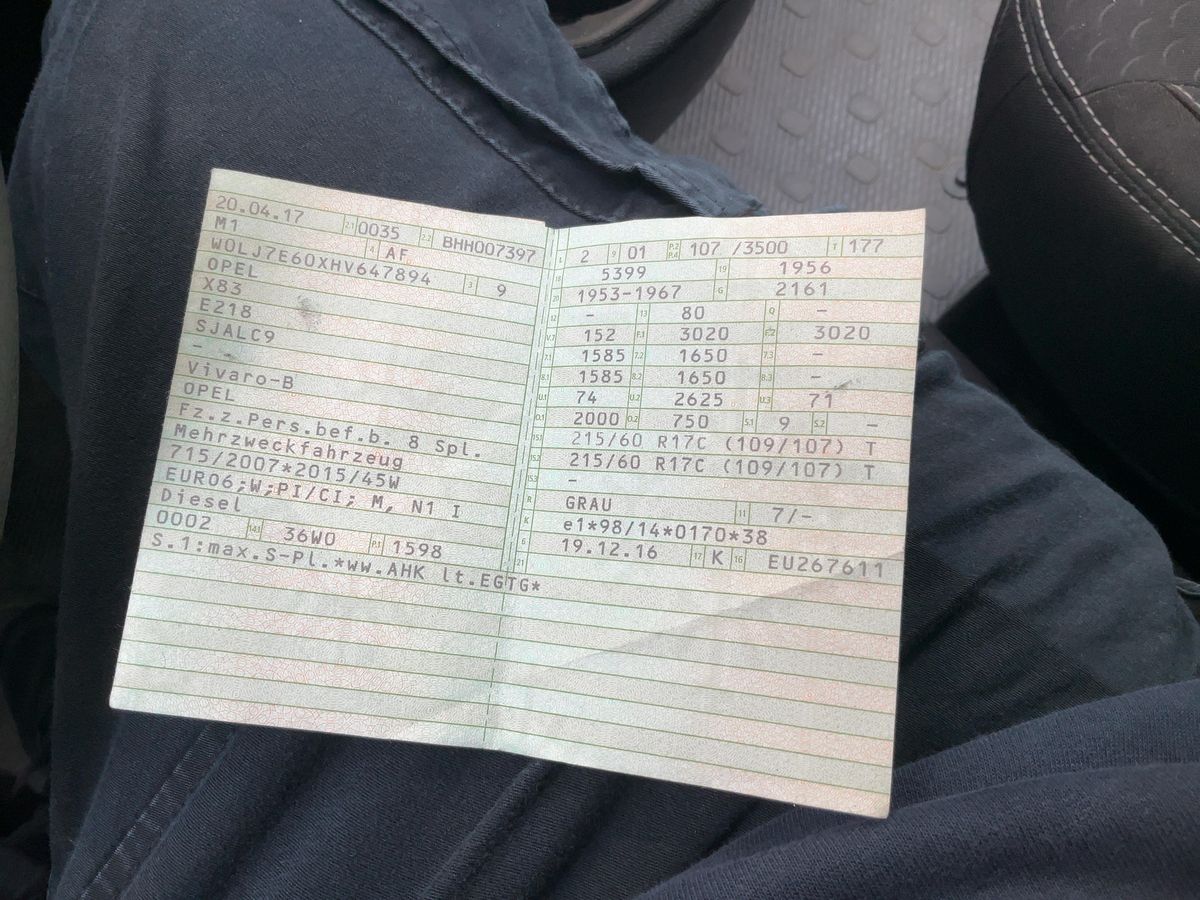 20.04.17 2.1 0035 2.2 BHH007397
M1 4 AF
W0LJ7E60XHV647894 3 9
OPEL
X83
E218
SJALC9
-
Vivaro-B
OPEL
Fz.z.Pers.bef.b. 8 Spl.
Mehrzweckfahrzeug
715/2007*2015/45W
EURO6;W;PI/CI; M, N1 I
Diesel
0002 14.1 36W0 P.1 1598
S.1:max.S-Pl.*ww.AHK lt.EGTG*
L 2 9 01 P.2 P.4 107 /3500 T 177
18 5399 19 1956
20 1953-1967 G 2161
12 - 13 80 Q -
V.7 152 F.1 3020 F.2 3020
7.1 1585 7.2 1650 7.3 -
8.1 1585 8.2 1650 8.3 -
U.1 74 U.2 2625 U.3 71
O.1 2000 O.2 750 S.1 9 S.2 -
15.1 215/60 R17C (109/107) T
15.2 215/60 R17C (109/107) T
15.3 -
R GRAU 11 7/-
K e1*98/14*0170*38
6 19.12.16 17 K 16 EU267611
21